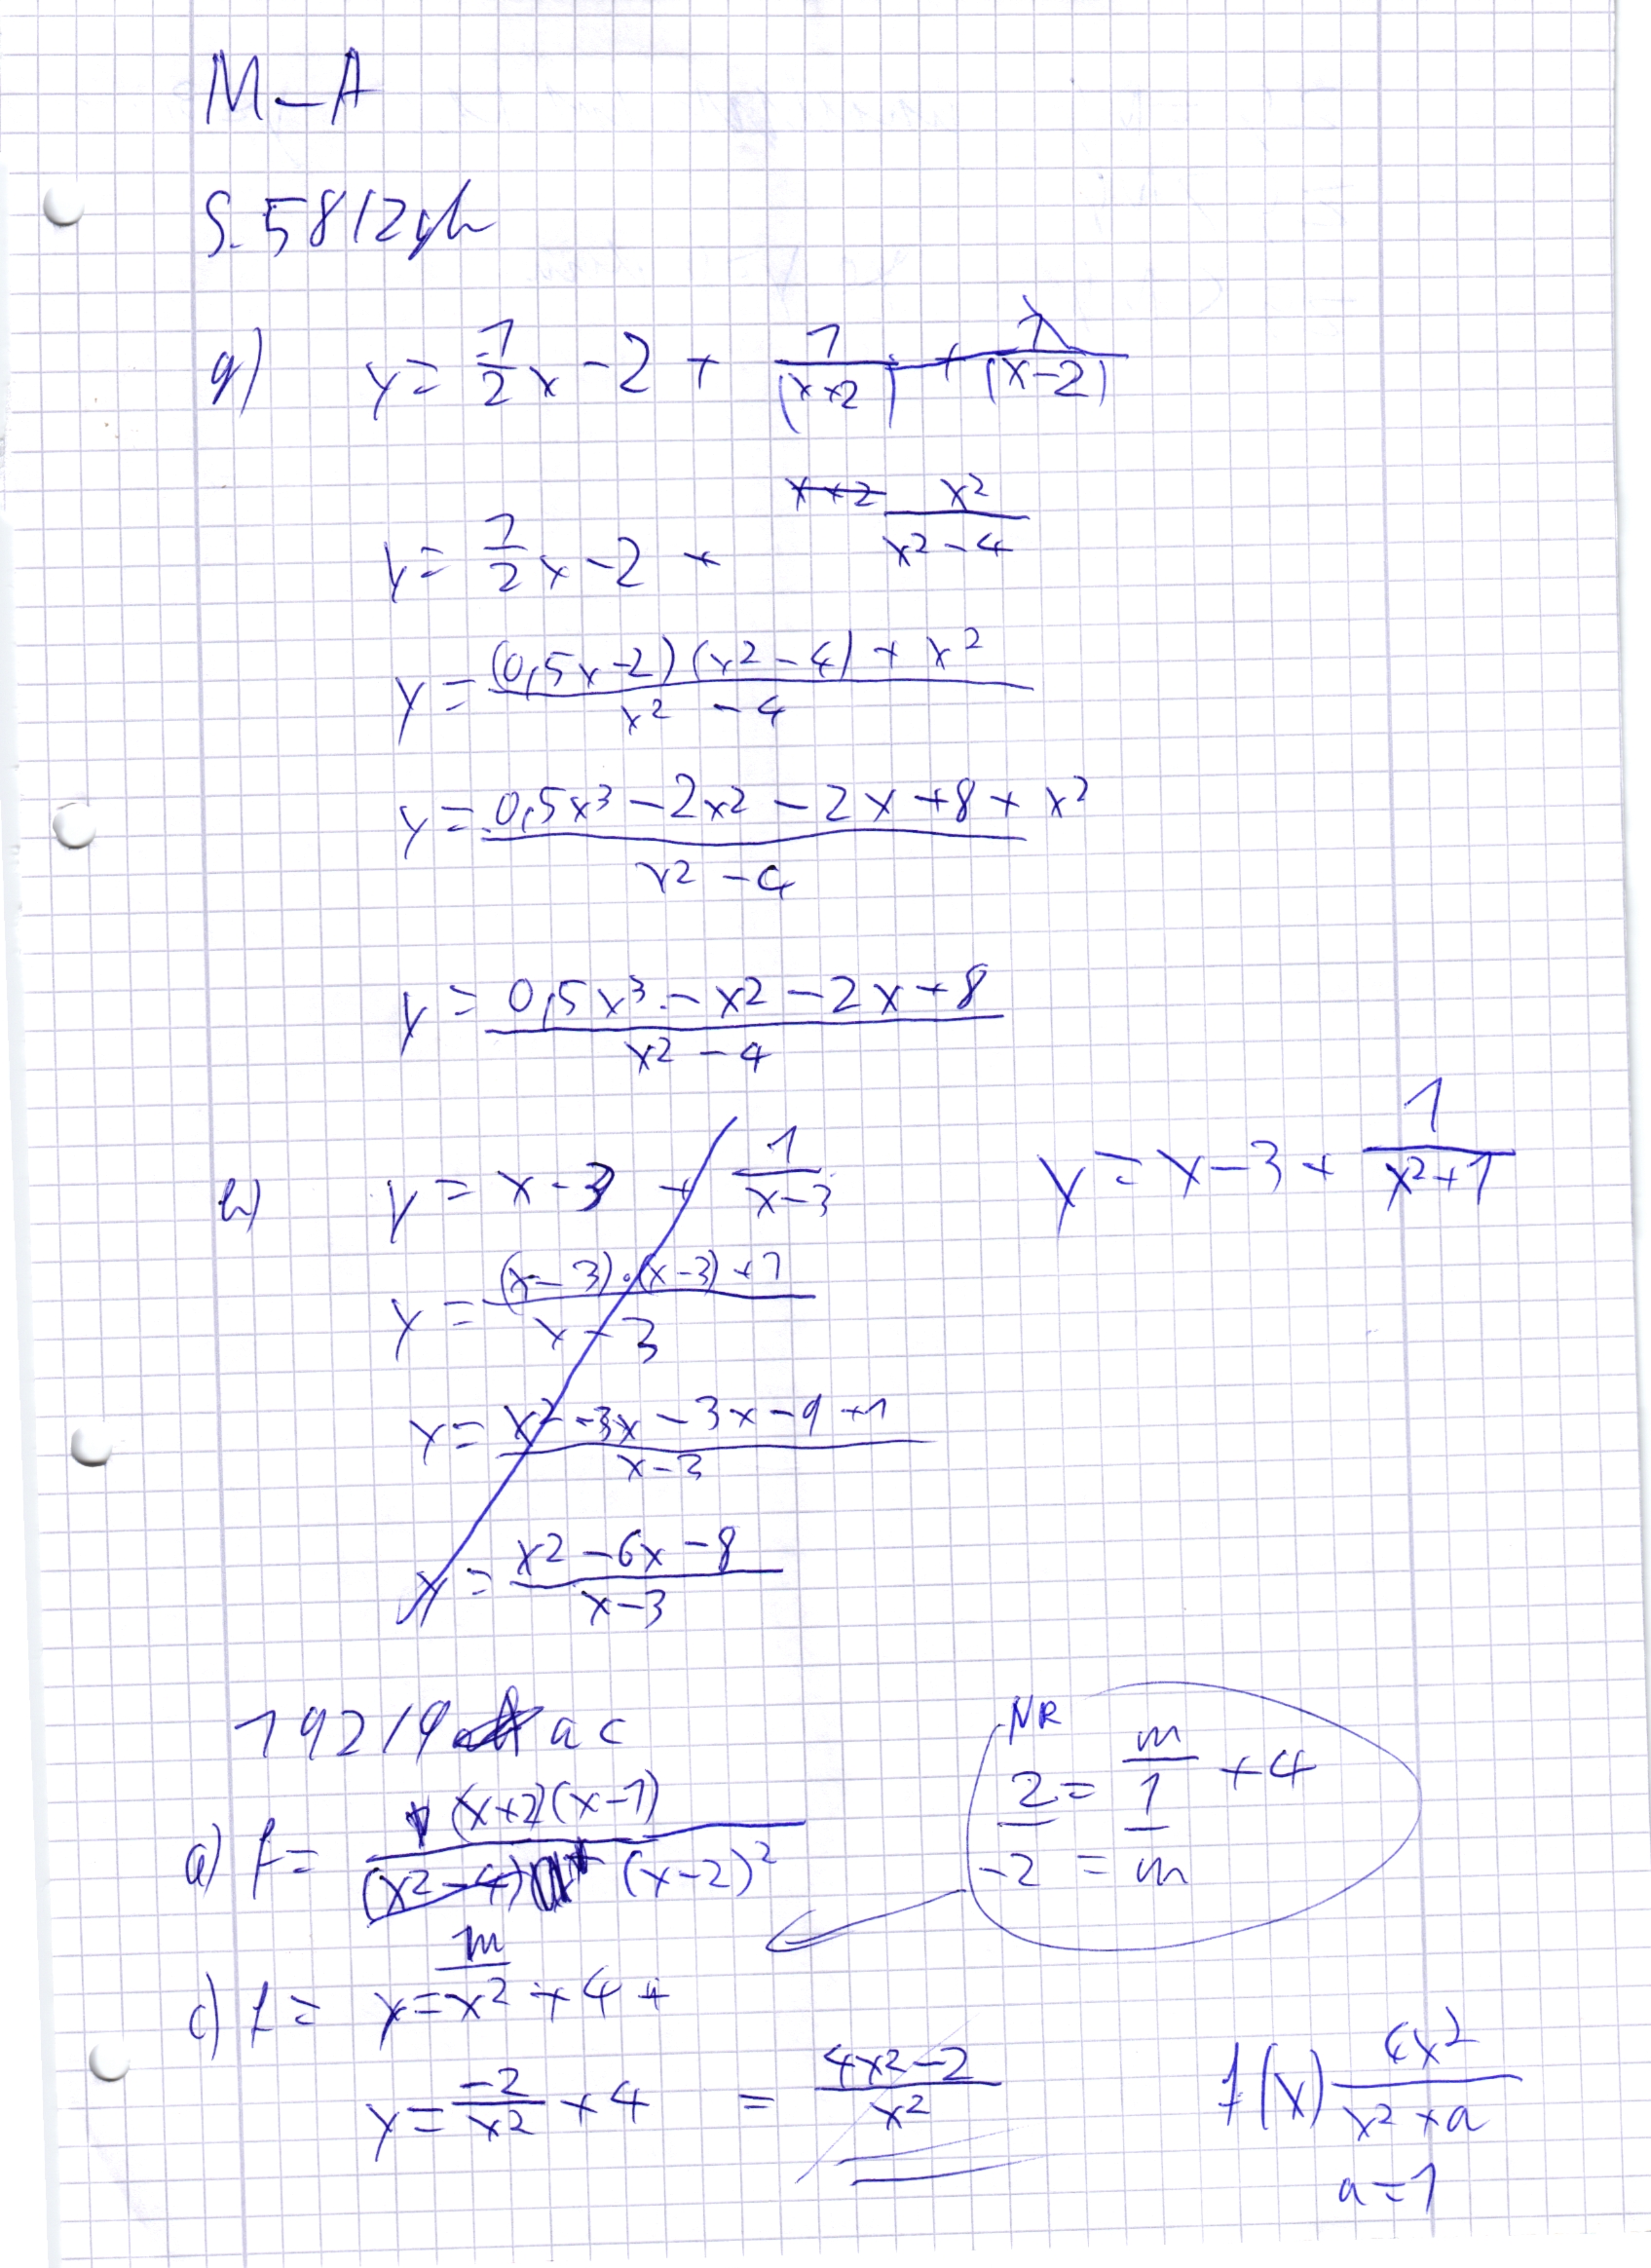 M-A
S. 58/2gh
g) y = 1/2 x - 2 + 1/(x+2) + 1/(x-2)
y = 1/2 x - 2 + x+2 x²/(x²-4)
y = ((0,5x-2)(x²-4) + x²)/(x² - 4)
y = (0,5x³ - 2x² - 2x + 8 + x²)/(x² - 4)
y = (0,5x³ - x² - 2x + 8)/(x² - 4)
h) y = x - 3 + 1/(x-3)
y = x - 3 + 1/(x²+1)
y = ((x-3)·(x-3)+1)/(x-3)
y = (x² - 3x - 3x - 9 + 1)/(x-3)
y = (x² - 6x - 8)/(x-3)
192/9 a c
a) f = (x+2)(x-1)/(x²-4) (x-2)²
NR
2 = m/1 + 4
-2 = m
c) f = y = m/x² + 4 +
y = -2/x² + 4 = (4x²-2)/x²
f(x) 4x²/(x²+a)
a = 1